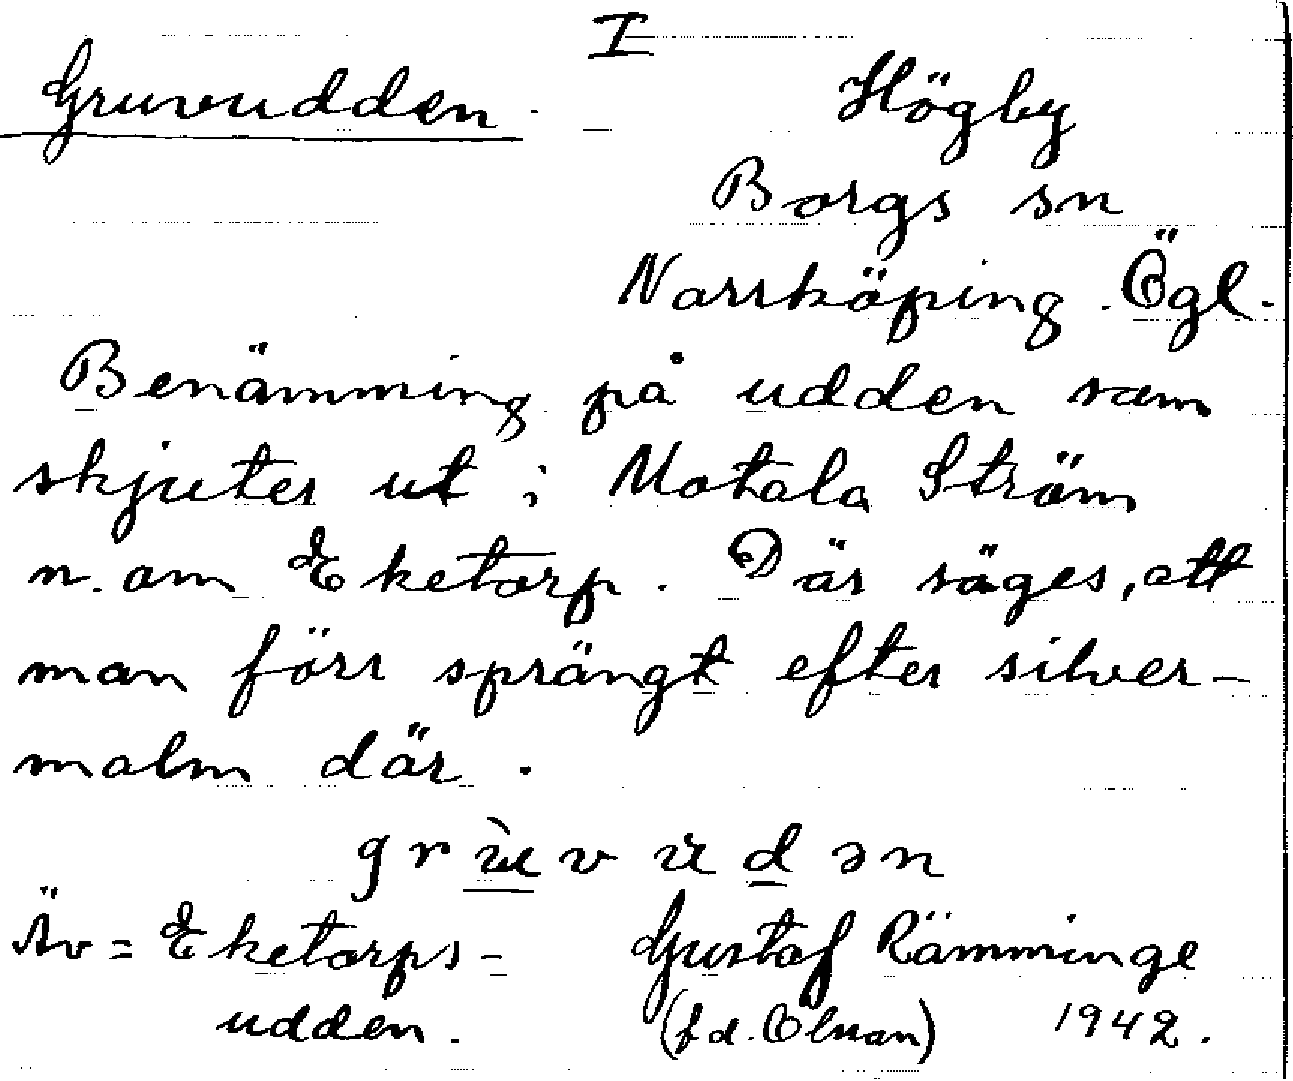 I
Gruvudden.
Högby
Borgs sn
Norrköping. Ögl.
Benämning på udden som
skjuter ut i Motala Ström
n. om Eketorp. Där säges, att
man förr sprängt efter silver-
malm där.
grùvüdən
Äv = Eketorps-
udden.
Gustaf Rämminge
(f d. Olsson)
1942.